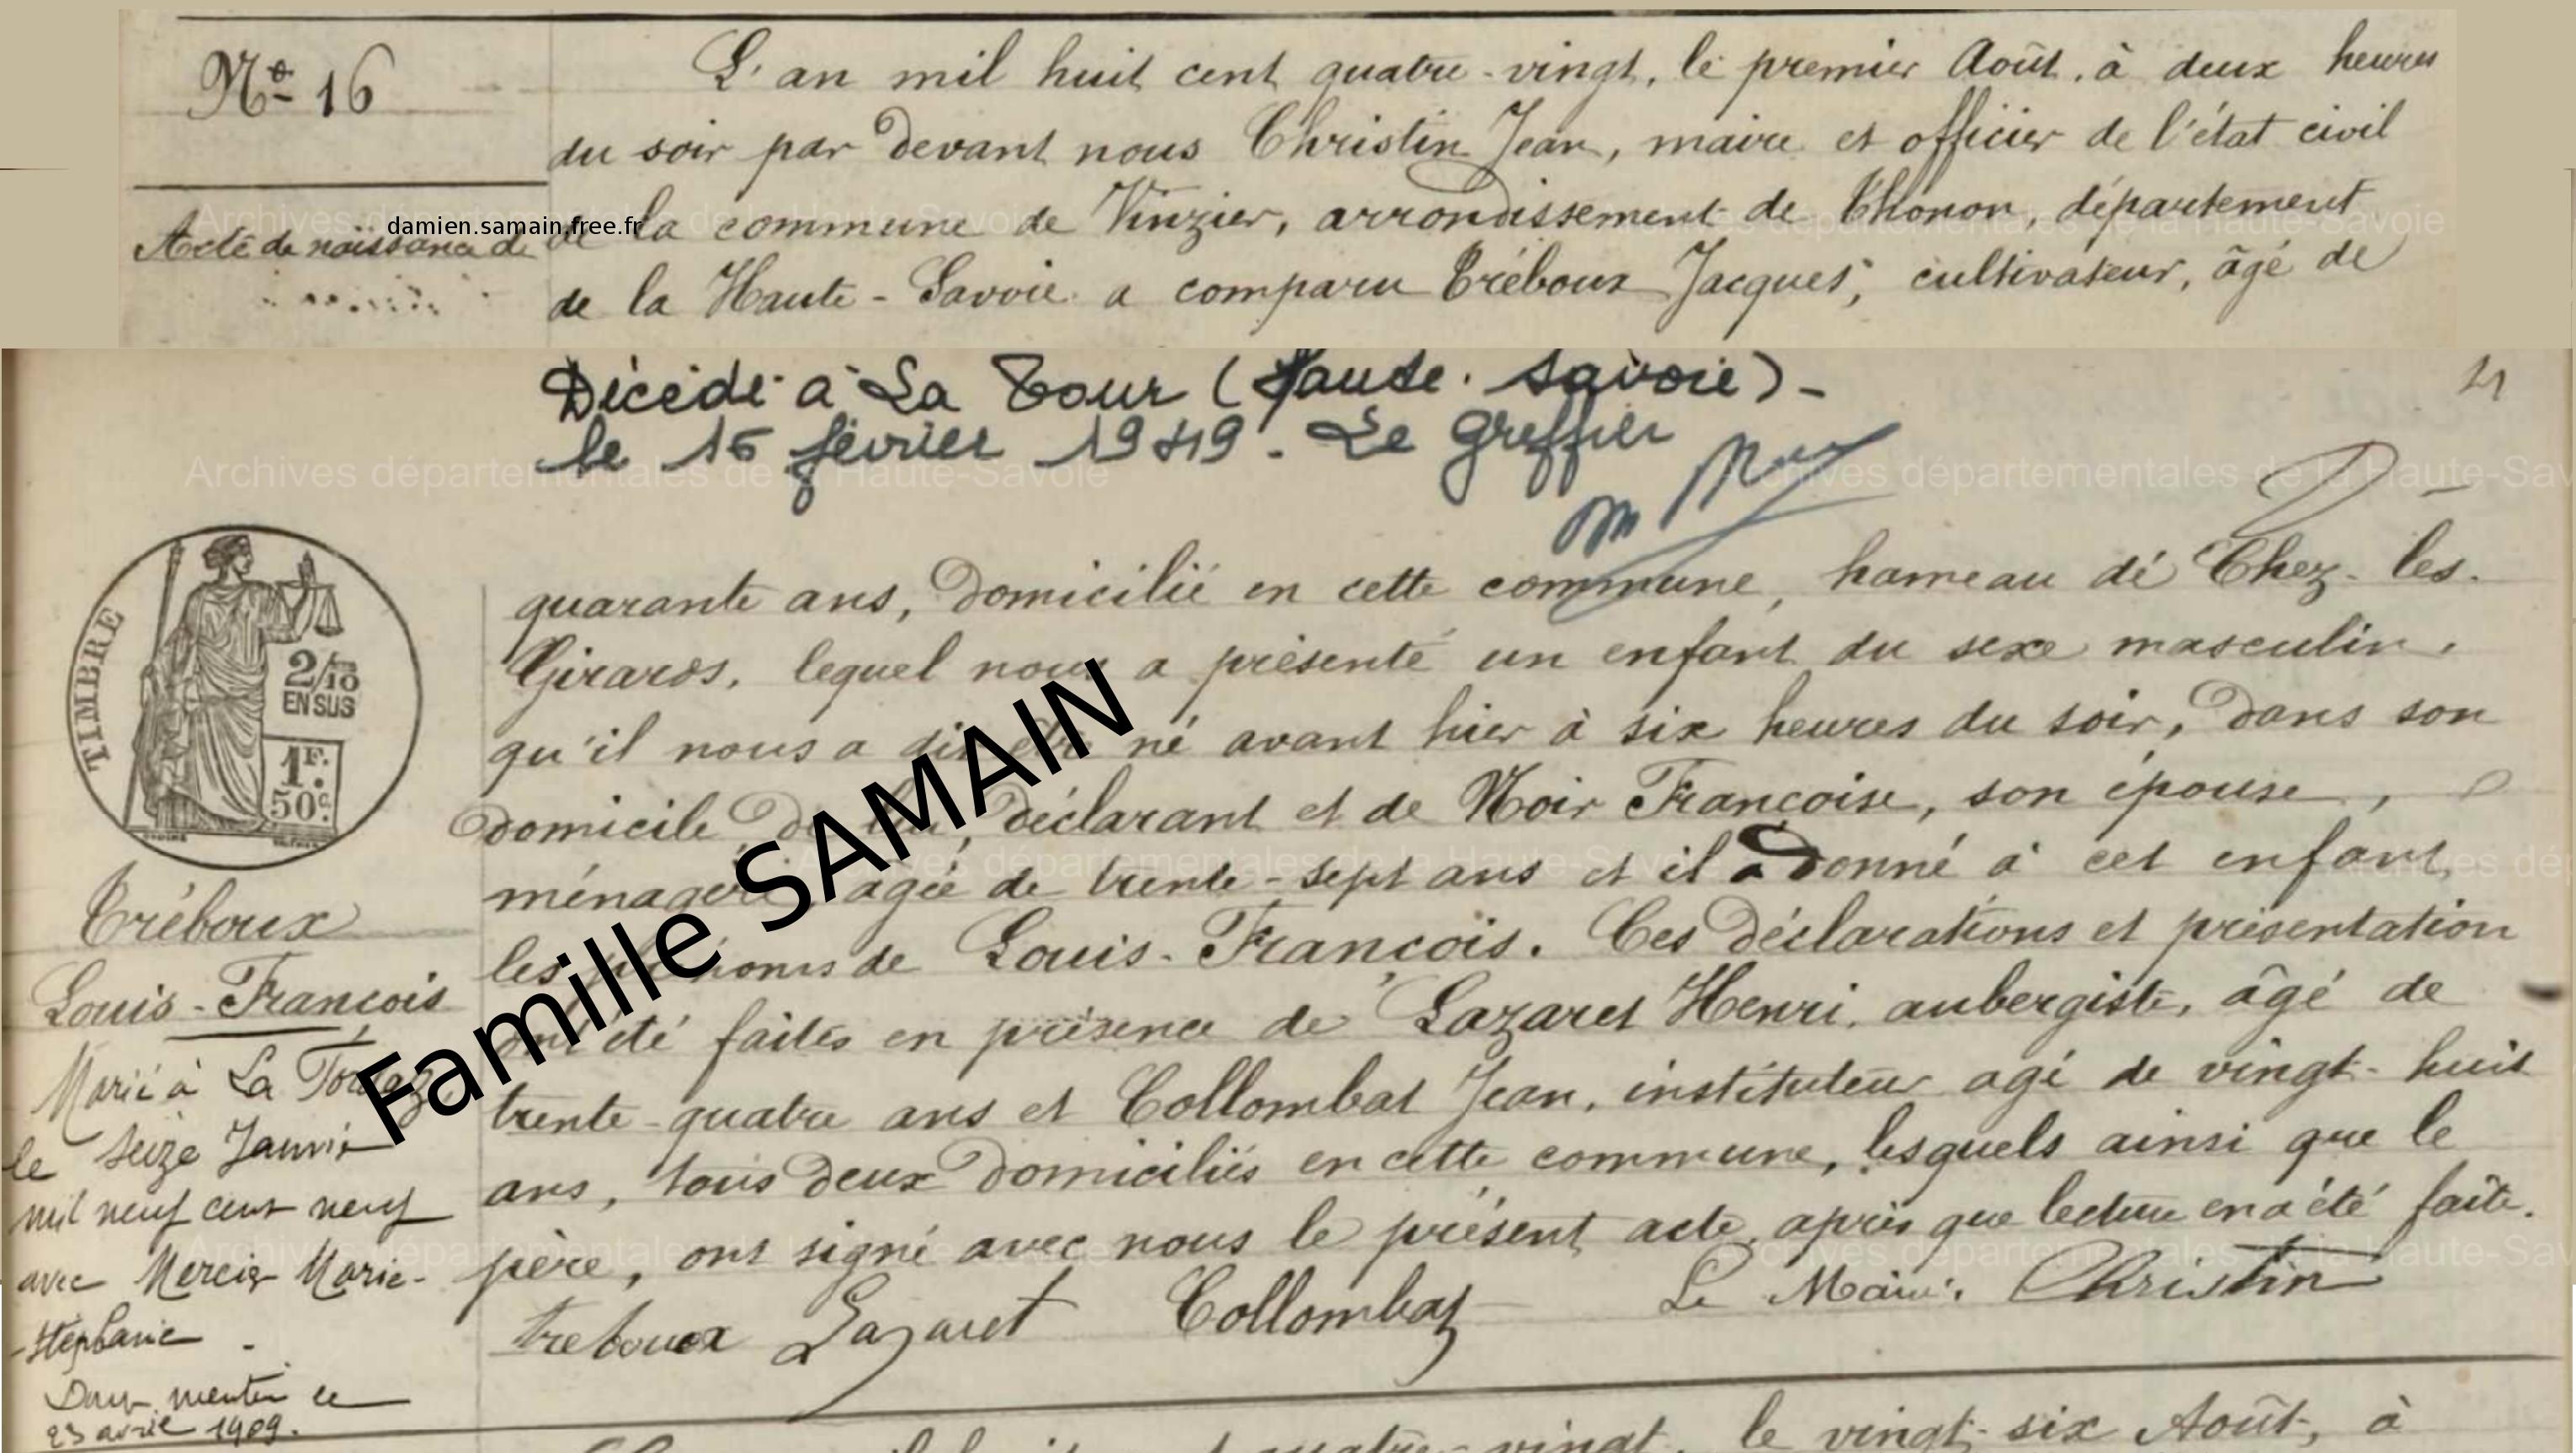 No 16
L'an mil huit cent quatre-vingt, le premier Août, à deux heures
du soir par devant nous Christin Jean, maire et officier de l'état civil
de la commune de Vinzier, arrondissement de Thonon, département
de la Haute-Savoie a comparu Tréboux Jacques, cultivateur, âgé de
Acte de naissance de
damien.samain.free.fr
Archives départementales de la Haute-Savoie
Décédé à La Tour (Haute-Savoie)-
le 15 février 1949. Le Greffier
quarante ans, domicilié en cette commune, hameau de Chez-les-
Girards, lequel nous a présenté un enfant du sexe masculin,
qu'il nous a dit être né avant hier à six heures du soir, dans son
domicile de lui, déclarant et de Noir Françoise, son épouse,
ménagère, agée de trente-sept ans et il a donné à cet enfant
les prénoms de Louis-François. Ces déclarations et présentation
ont été faites en présence de Lazaret Henri, aubergiste, âgé de
trente-quatre ans et Collombat Jean, instituteur agé de vingt-huit
ans, tous deux domiciliés en cette commune, lesquels ainsi que le
père, ont signé avec nous le présent acte, après que lecture en a été faite.
treboux Lazaret Collombat Le Maire: Christin
TIMBRE
2/10
EN SUS
1F.
50c.
Tréboux
Louis-François
Marié à La
le seize Janvier
mil neuf cent neuf
avec Mercier Marie-
-Stéphanie
mention le
23 avril 1909.
Famille SAMAIN
quatre-vingt, le vingt-six Août, à